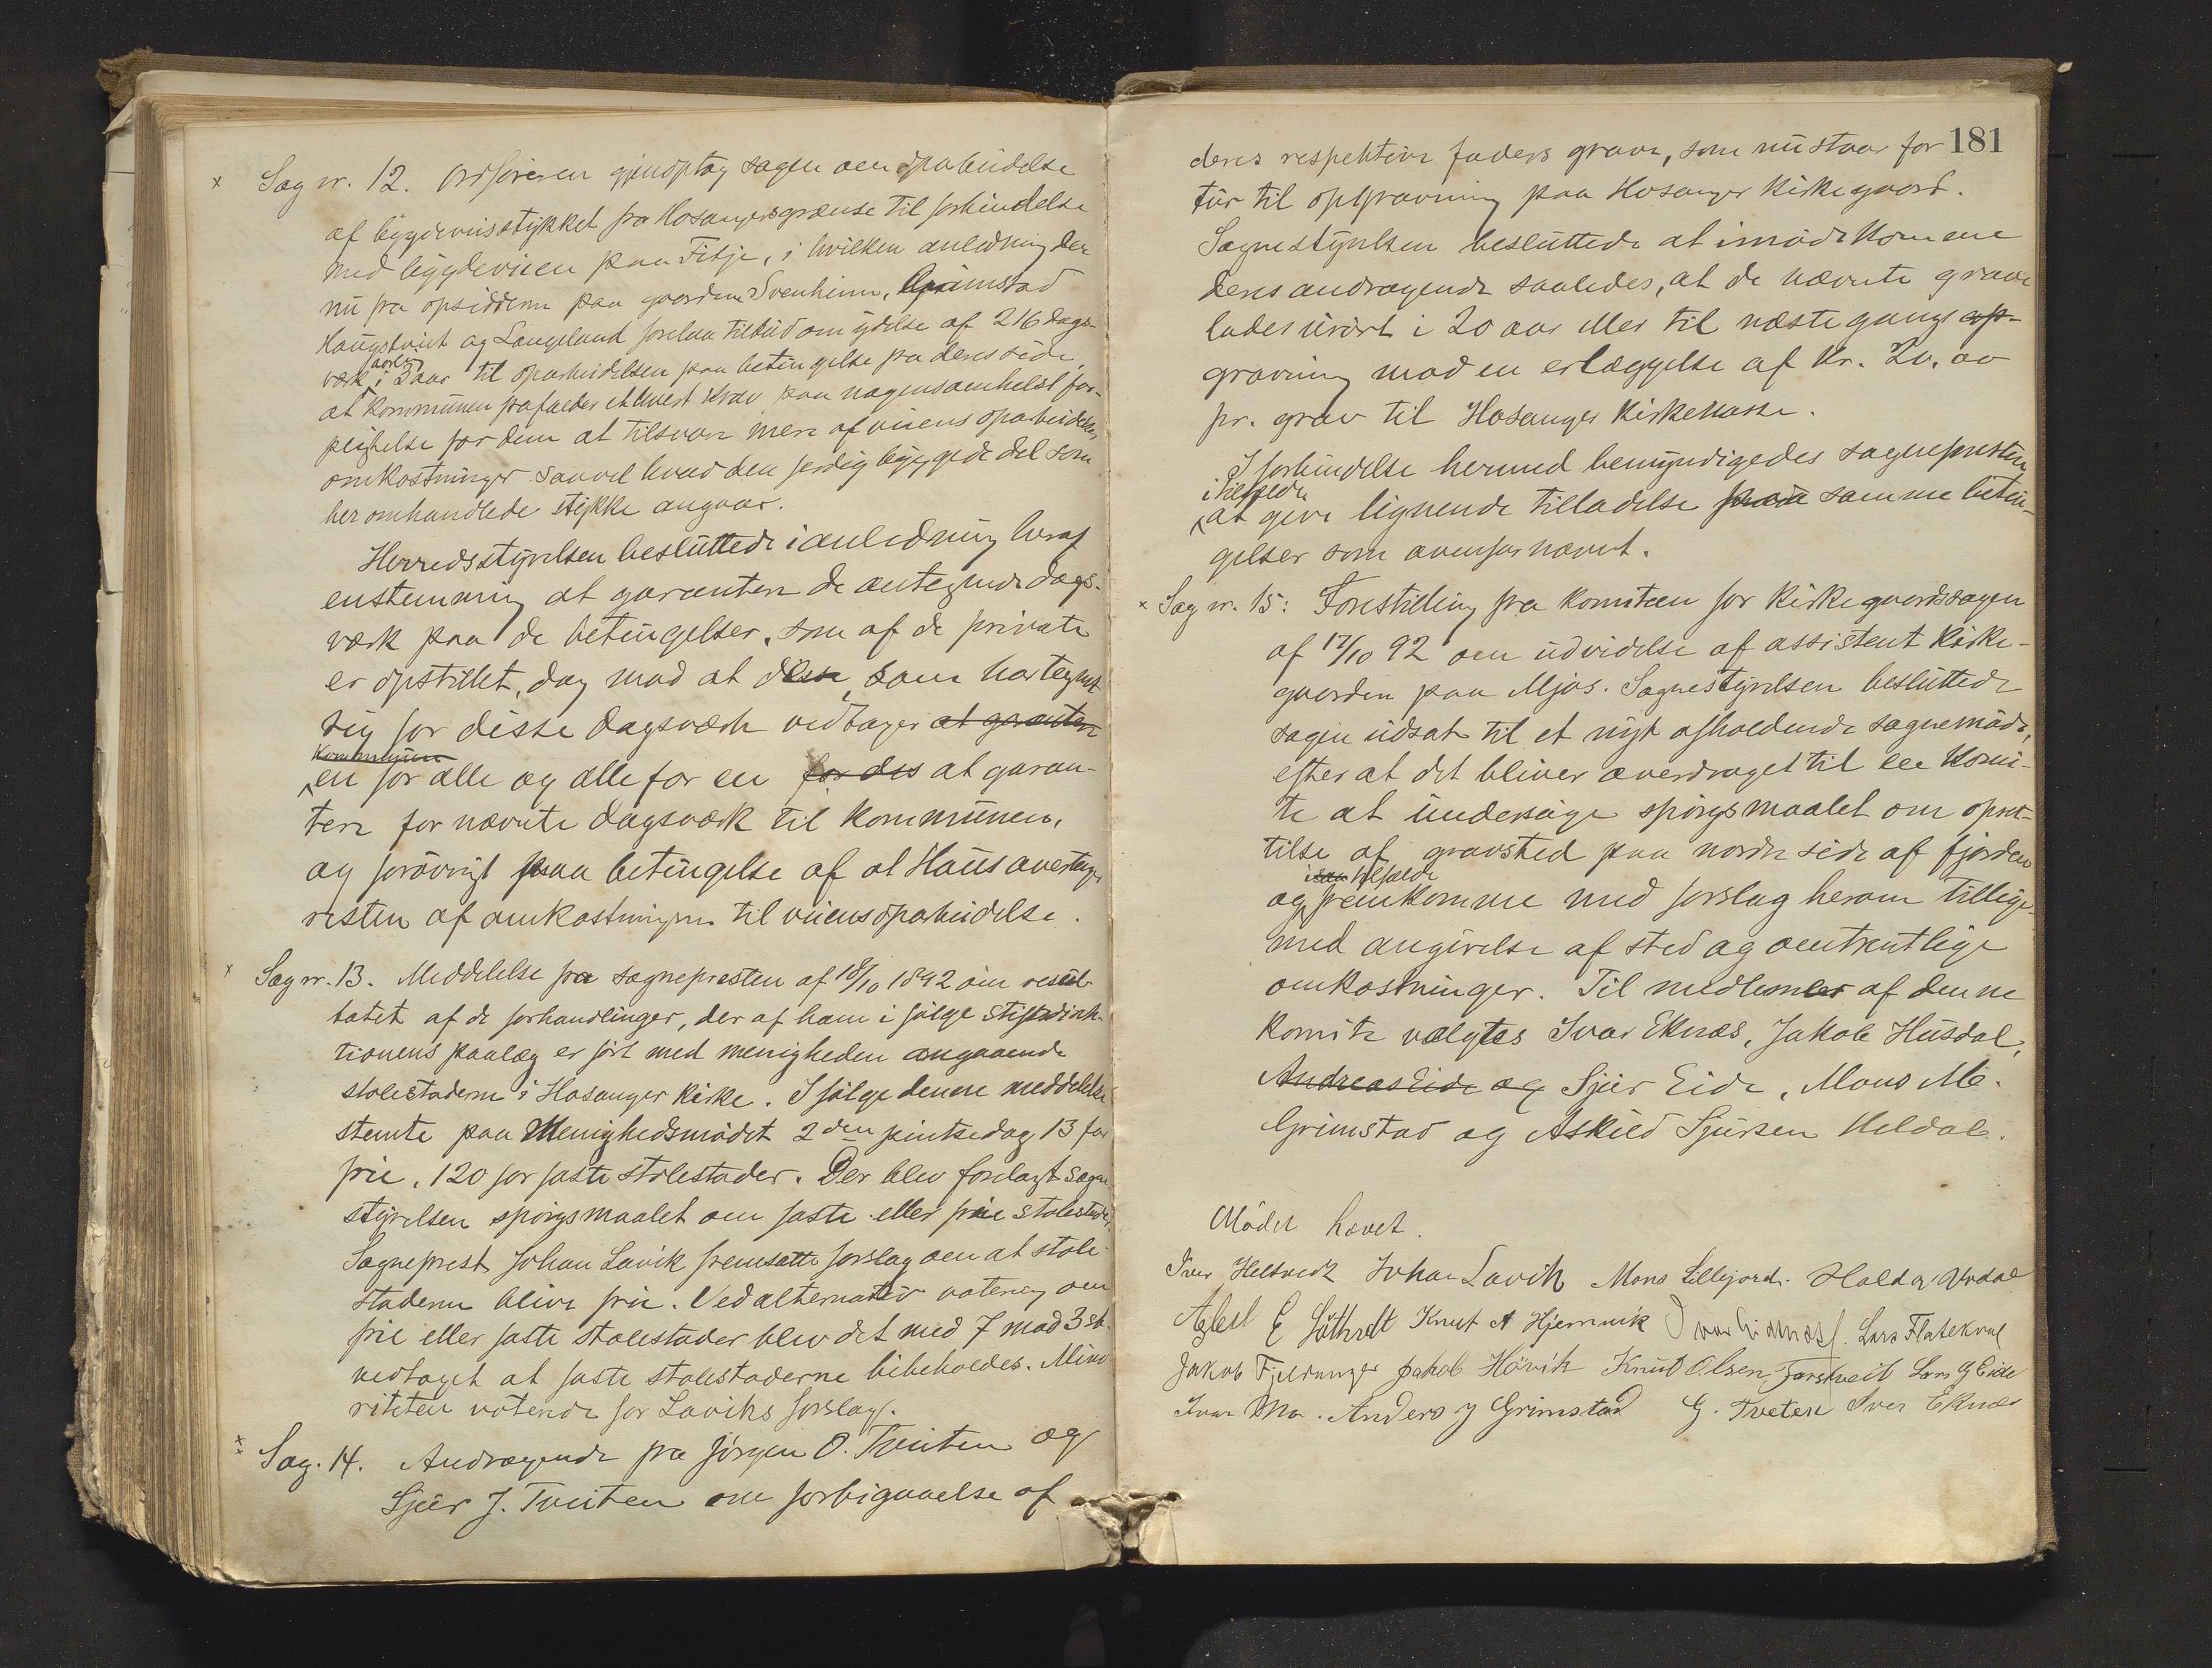 x Sag nr. 12. Ordføreren gjenoptog sagen om oparbeidelse
af bygdeveisstykket fra Hosangersgrænse til forbindelse
med bygdeveien paa Fitje, i hvilken anledning der
nu fra opsidderne paa gaardene Svenheim, Grimstad
Haugstvedt og Langeland forelaa tilbud om ydelse af 216 dags-
værk aarlig i 3 aar til oparbeidelsen paa betingelse fra deres side,
at kommunen frafalder ethvert krav paa nogensomhelst for-
pligtelse for dem at tilsvare mere af veiens oparbeidelses
omkostninger saavel hvad den ferdig byggede del som
her omhandlede stykke angaar.
Herredsstyrelsen besluttede i anledning heraf
enstemmig at garantere de antegnede dags-
værk paa de betingelser, som af de private
er opstillet, dog mod at disse, som har tegnet
sig for disse dagsværk vedtager at garantere
kommunen
en for alle og alle for en for des at garan-
tere for nævnte dagsværk til kommunen,
og forøvrigt paa betingelse af at Haus overtager
resten af omkostningerne til veiens oparbeidelse.
x Sag nr. 13. Meddelelse fra sognepresten af 18/10 1892 om resul-
tatet af de forhandlinger, der af ham i følge stiftsdirek-
tionens paalæg er ført med menigheden angaaende
stolestaderne i Hosanger kirke. I følge denne meddelelse
stemte paa Menighedsmødet 2den pintsedag 13 for
frie, 120 for faste stolestader. Der blev forelagt sogne-
styrelsen spørgsmaalet om faste eller frie stolestader.
Sogneprest Johan Lavik fremsatte forslag om at stole-
staderne blive frie. Ved alternativ votering om
frie eller faste stolestader blev det med 7 mod 3 st.
vedtaget at faste stolestaderne bibeholdes. Mino-
riteten voterede for Laviks forslag.
x Sag. 14. Andragende fra Jørgen O. Tveiten og
Sjur J. Tveiten om forbigaaelse af
181
deres respektive faders grave, som nu staar for
tur til opgravning paa Hosanger kirkegaard.
Sognestyrelsen besluttede at imødekomme
deres andragende saaledes, at de nævnte grave
lades urørt i 20 aar eller til næste gangs op-
gravning mod en erlæggelse af Kr. 20,00
pr. grav til Hosanger kirkekasse.
I forbindelse hermed bemyndigedes sognepresten
i tilfælde
at give lignende tilladelse paa samme betin-
gelser som ovenfor nævnt.
x Sag nr. 15: Forestilling fra komiteen for kirkegaardssagen
af 17/10 92 om udvidelse af assistent kirke-
gaarden paa Mjøs. Sognestyrelsen besluttede
sagen udsat til et nyt afholdende sognemøde,
efter at det bliver overdraget til en komi-
te at undersøge spørgsmaalet om opret-
telse af gravsted paa nordre side af fjorden
i saa tilfælde
og fremkomme med forslag herom tillige-
med angivelse af sted og omtrentlige
omkostninger. Til medlemmer af denne
komite valgtes Ivar Eknæs, Jakob Husdal,
Andreas Eide og Sjur Eide, Mons M.
Grimstad og Askild Sjursen Heldal.
Mødet hævet.
Iver Heltvedt Johan Lavik Mons Lillejord. Haldor Ardal
E Knut A Hjemvik Lars Flatekval
Jakob Fjeldanger Jakob Høvik Knut Olsen Lars G Eide
Ivar Anders J Grimstad G. Tveten Iver Eknæs